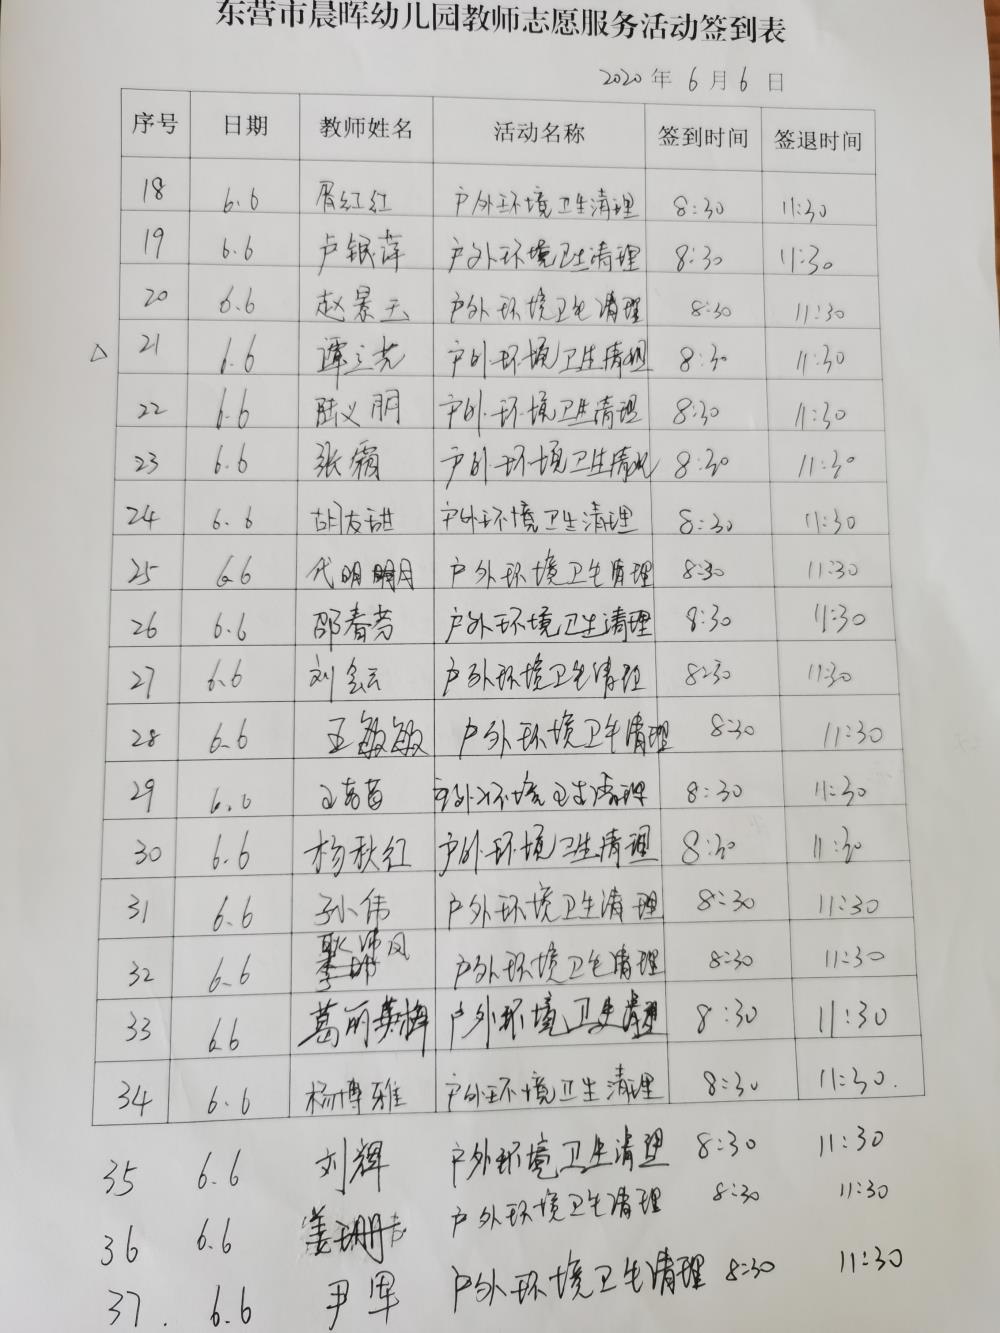 东营市晨晖幼儿园教师志愿服务活动签到表
2020年 6月 6日
序号 日期 教师姓名 活动名称 签到时间 签退时间
18 6.6 胥红红 户外环境卫生清理 8:30 11:30
19 6.6 卢银萍 户外环境卫生清理 8:30 11:30
20 6.6 赵景玉 户外环境卫生清理 8:30 11:30
△ 21 6.6 谭立芳 户外环境卫生清理 8:30 11:30
22 6.6 陆义朋 户外环境卫生清理 8:30 11:30
23 6.6 张霜 户外环境卫生清理 8:30 11:30
24 6.6 胡友甜 户外环境卫生清理 8:30 11:30
25 6.6 代明明 户外环境卫生清理 8:30 11:30
26 6.6 邵春芳 户外环境卫生清理 8:30 11:30
27 6.6 刘会云 户外环境卫生清理 8:30 11:30
28 6.6 王敏敏 户外环境卫生清理 8:30 11:30
29 6.6 户外环境卫生清理 8:30 11:30
30 6.6 杨秋红 户外环境卫生清理 8:30 11:30
31 6.6 孙伟 户外环境卫生清理 8:30 11:30
32 6.6 户外环境卫生清理 8:30 11:30
33 6.6 葛丽梅 户外环境卫生清理 8:30 11:30
34 6.6 杨博雅 户外环境卫生清理 8:30 11:30.
35 6.6 刘辉 户外环境卫生清理 8:30 11:30
36 6.6 户外环境卫生清理 8:30 11:30
37. 6.6 尹军 户外环境卫生清理 8:30 11:30